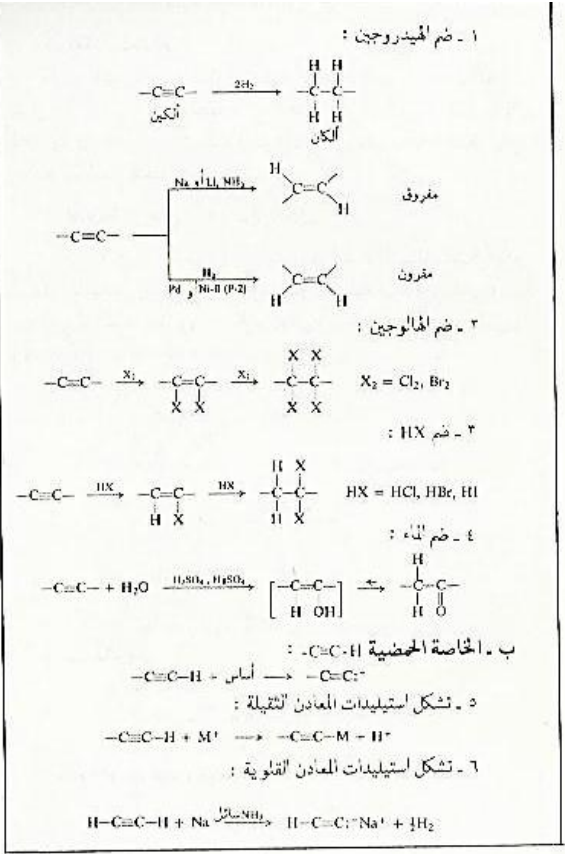 ١ ـ ضم الهيدروجين :
–C≡C– 2H₂ → –C–C– H H H H
ألكين ألكان
Na أو Li, NH₃ → H C=C H مفروق
–C≡C–
H₂ Pd أو Ni-B (P-2) → C=C H H مقرون
٢ ـ ضم الهالوجين :
–C≡C– X₂ → –C=C– X X X₂ → –C–C– X X X X X₂ = Cl₂, Br₂
٣ ـ ضم HX :
–C≡C– HX → –C=C– H X HX → –C–C– H X H X HX = HCl, HBr, HI
٤ ـ ضم الماء :
–C≡C– + H₂O H₂SO₄ , HgSO₄ → [–C=C– H OH] ⇌ –C–C– H H O
ب ـ الخاصة الحمضية -C≡C-H :
–C≡C–H + أساس → –C≡C:⁻
٥ ـ تشكل استيليدات المعادن الثقيلة :
–C≡C–H + M⁺ → –C≡C–M + H⁺
٦ ـ تشكل استيليدات المعادن القلوية :
H–C≡C–H + Na سائل NH₃ → H–C≡C:⁻Na⁺ + ½H₂